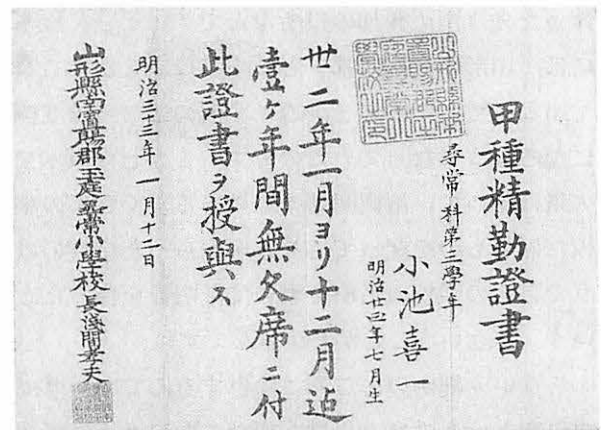 甲種精勤證書
尋常科第三學年
小池喜一
明治廿四年七月生
丗二年一月ヨリ十二月迠
壹ヶ年間無欠席ニ付
此證書ヲ授與ス
明治三十三年一月十二日
山形縣南置賜郡玉庭尋常小學校長淺間孝夫